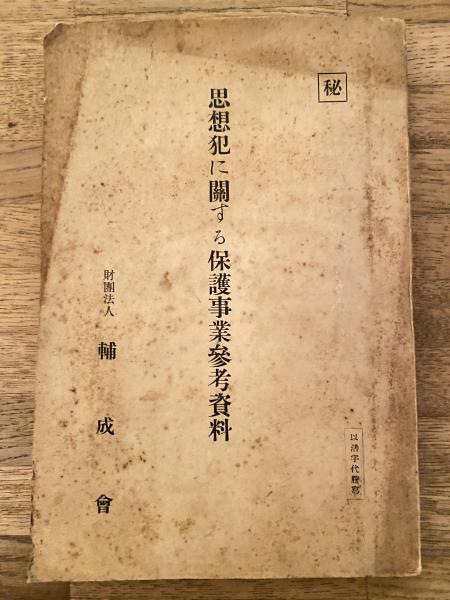 秘
以活字代謄寫
思想犯に關する保護事業參考資料
財團法人 輔成會